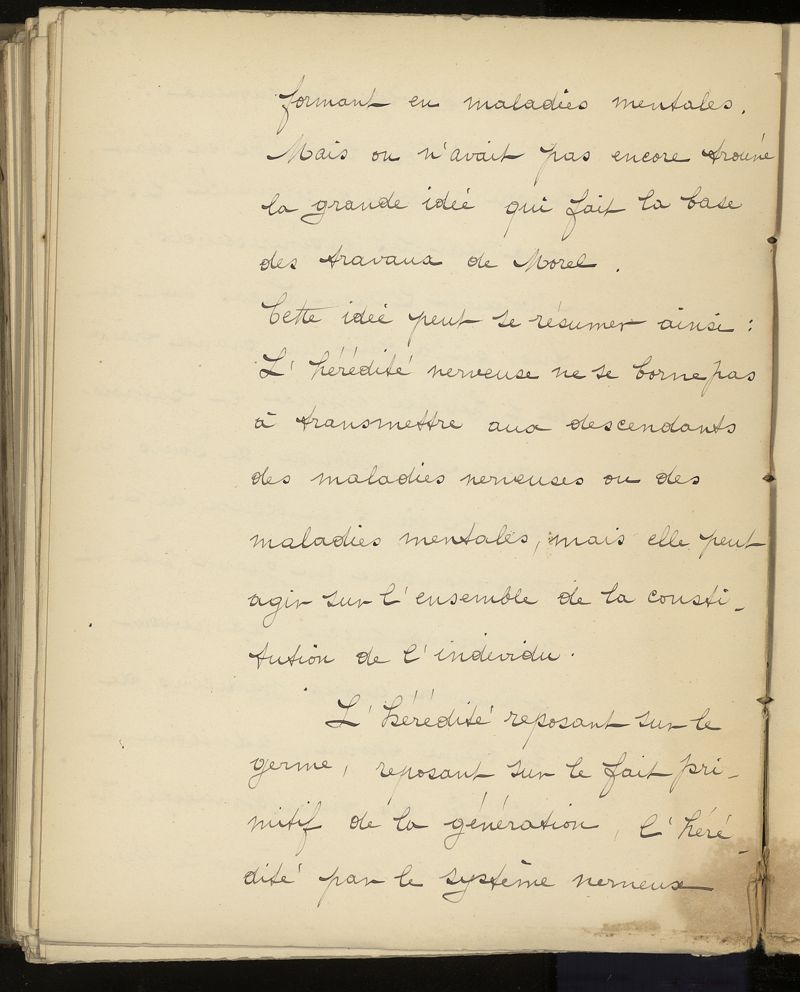 formant en maladies mentales.
Mais on n'avait pas encore trouvé
la grande idée qui fait la base
des travaux de Morel.
Cette idée peut se résumer ainsi :
L'hérédité nerveuse ne se borne pas
à transmettre aux descendants
des maladies nerveuses ou des
maladies mentales, mais elle peut
agir sur l'ensemble de la consti-
tution de l'individu.
L'hérédité reposant sur le
germe, reposant sur le fait pri-
mitif de la génération, l'héré-
dité par le système nerveux